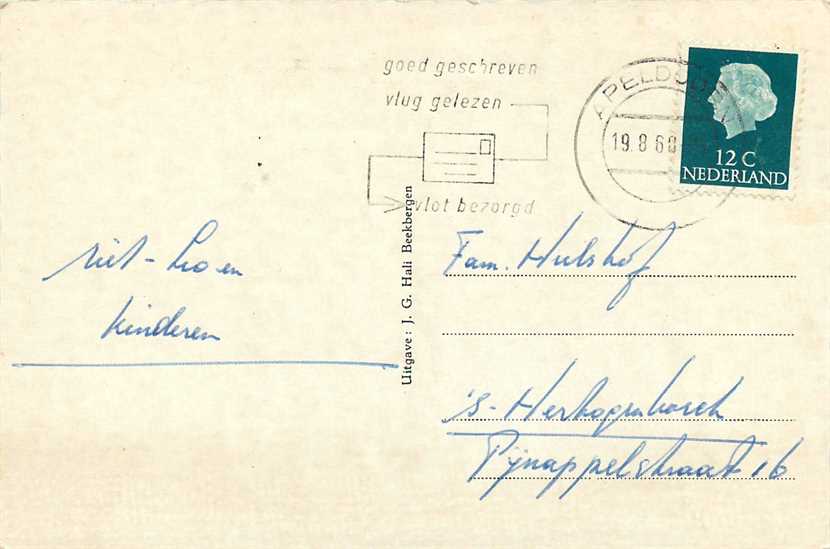 goed geschreven
vlug gelezen
vlot bezorgd
APELDOORN
19.8.60
12 C
NEDERLAND
Riet - Leo en
kinderen
Uitgave: J. G. Hali Beekbergen
Fam. Hulshof
's-Hertogenbosch
Pijnappelstraat 16